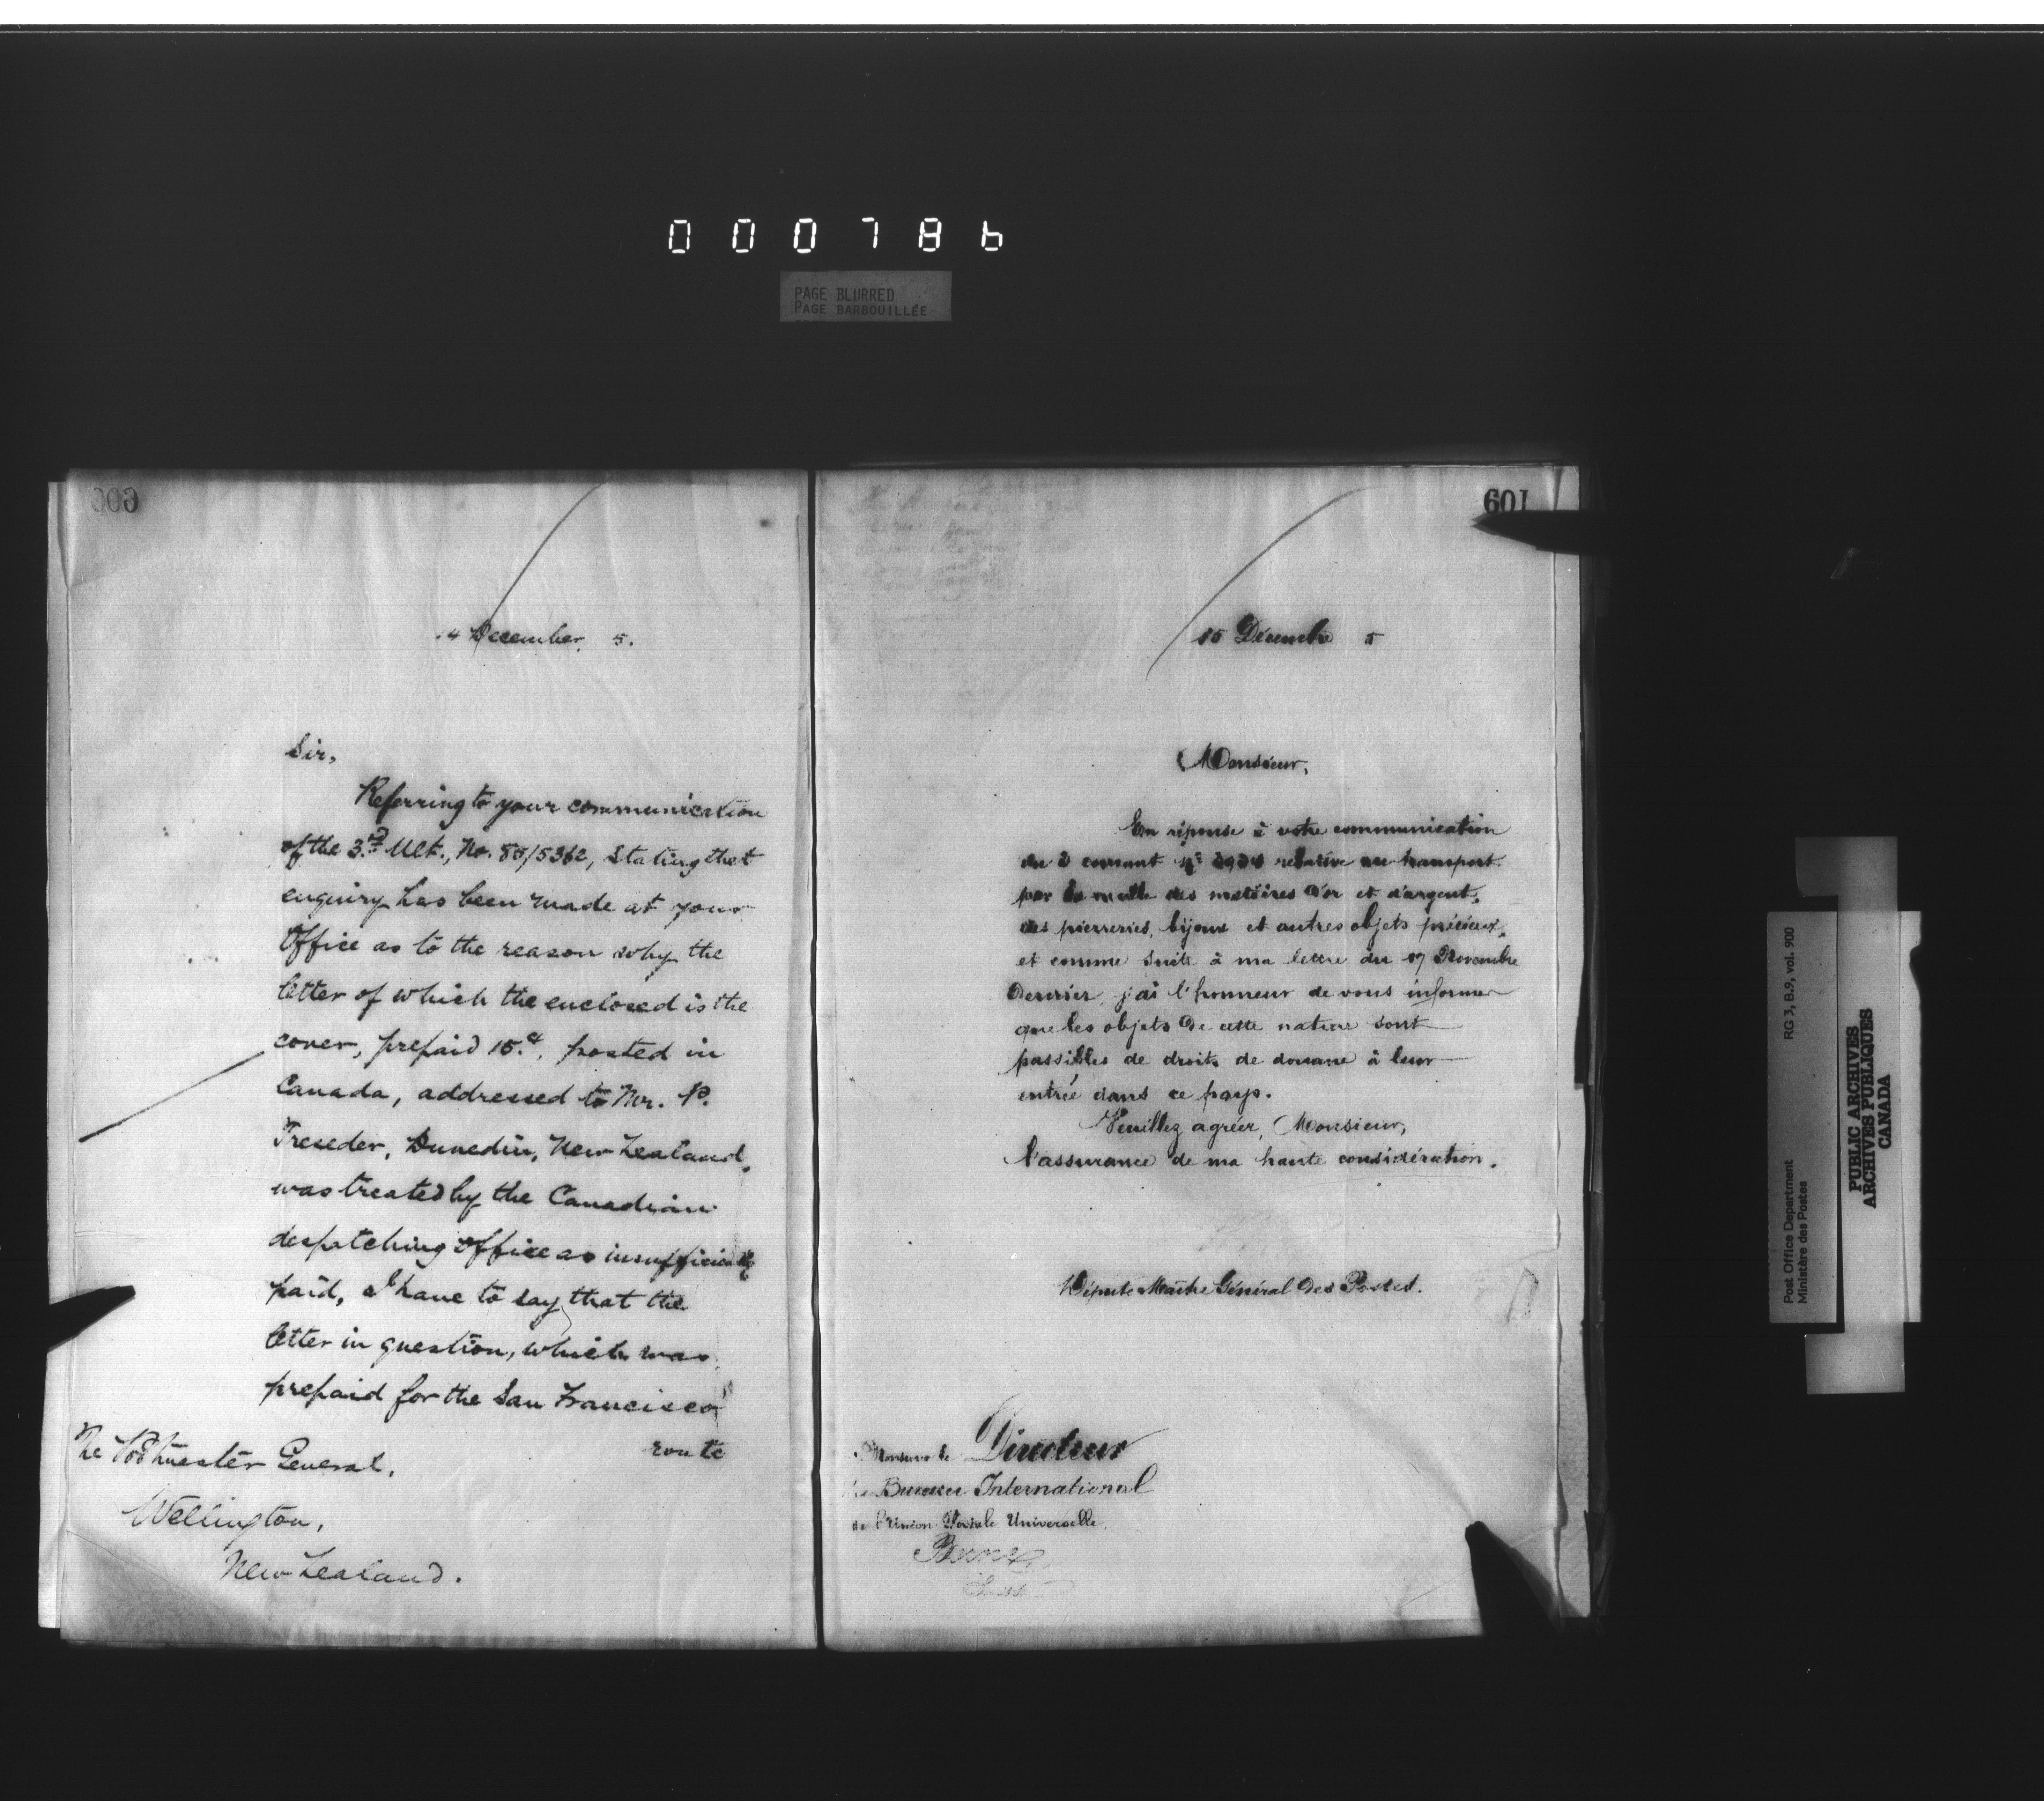 000786
PAGE BLURRED
PAGE BARBOUILLÉE
600
4 December, 5.
Sir,
Referring to your communication
of the 3rd Ult., No. 85/5362, stating that
enquiry has been made at your
Office as to the reason why the
letter of which the enclosed is the
cover, prepaid 15c, posted in
Canada, addressed to Mr. P.
Treseder, Dunedin, New Zealand,
was treated by the Canadian
despatching office as insufficiently
paid, I have to say that the
letter in question, which was
prepaid for the San Francisco
route
The Postmaster General,
Wellington,
New Zealand.
601
15 Décembre 5
Monsieur,
En réponse à votre communication
du courant relative au transport
par la malle des matières d'or et d'argent,
des pierreries, bijoux et autres objets précieux,
et comme suite à ma lettre du 17 Novembre
dernier, j'ai l'honneur de vous informer
que les objets de cette nature sont
passibles de droits de douane à leur
entrée dans ce pays.
Veuillez agréer, Monsieur,
l'assurance de ma haute considération.
Député Maître Général des Postes.
Monsieur le Directeur
Bureau International
de l'Union Postale Universelle,
Berne
Suisse
Post Office Department
Ministère des Postes
RG 3, B.9, vol. 900
PUBLIC ARCHIVES
ARCHIVES PUBLIQUES
CANADA